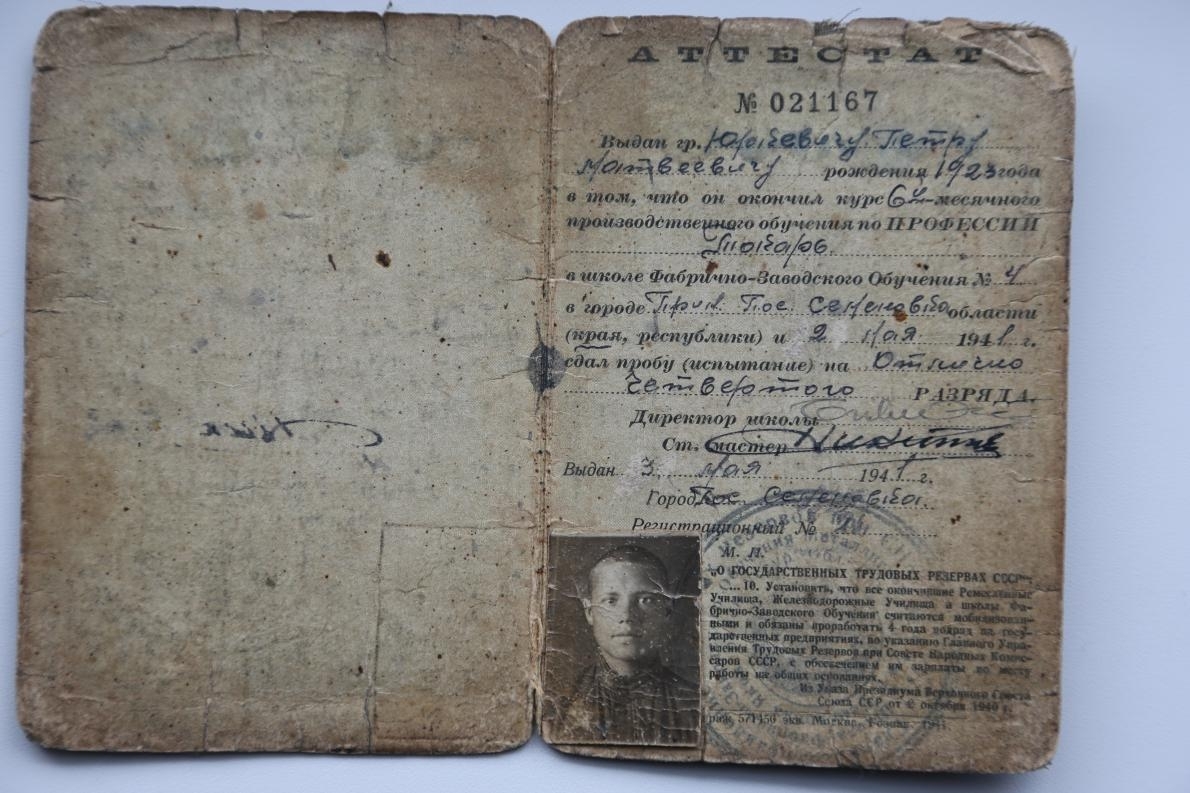 АТТЕСТАТ
№ 021167
Выдан гр. Юрасевичу Петру
Матвеевичу рождения 1923 года
в том, что он окончил курс 6ти-месячного
производственного обучения по ПРОФЕССИИ
Токарь.
в школе Фабрично-Заводского Обучения № 4
в городе При Пос Семеновка области
(края, республики) и 2 мая 1941 г.
сдал пробу (испытание) на Отлично
Четвертого РАЗРЯДА.
Директор школы
Ст. мастер
Выдан 3 мая 1941 г.
Город Пос Семеновка.
Регистрационный №
М. П.
„О ГОСУДАРСТВЕННЫХ ТРУДОВЫХ РЕЗЕРВАХ СССР“:
„...10. Установить, что все окончившие Ремесленные
Училища, Железнодорожные Училища и школы Фа-
брично-Заводского Обучения считаются мобилизован-
ными и обязаны проработать 4 года подряд на госу-
дарственных предприятиях, по указанию Главного Упра-
вления Трудовых Резервов при Совете Народных Комис-
саров СССР, с обеспечением им зарплаты по месту
работы на общих основаниях.
Из Указа Президиума Верховного Совета
Союза ССР от 2 октября 1940 г.
раж 571450 экз. Москва, Гознак, 1941